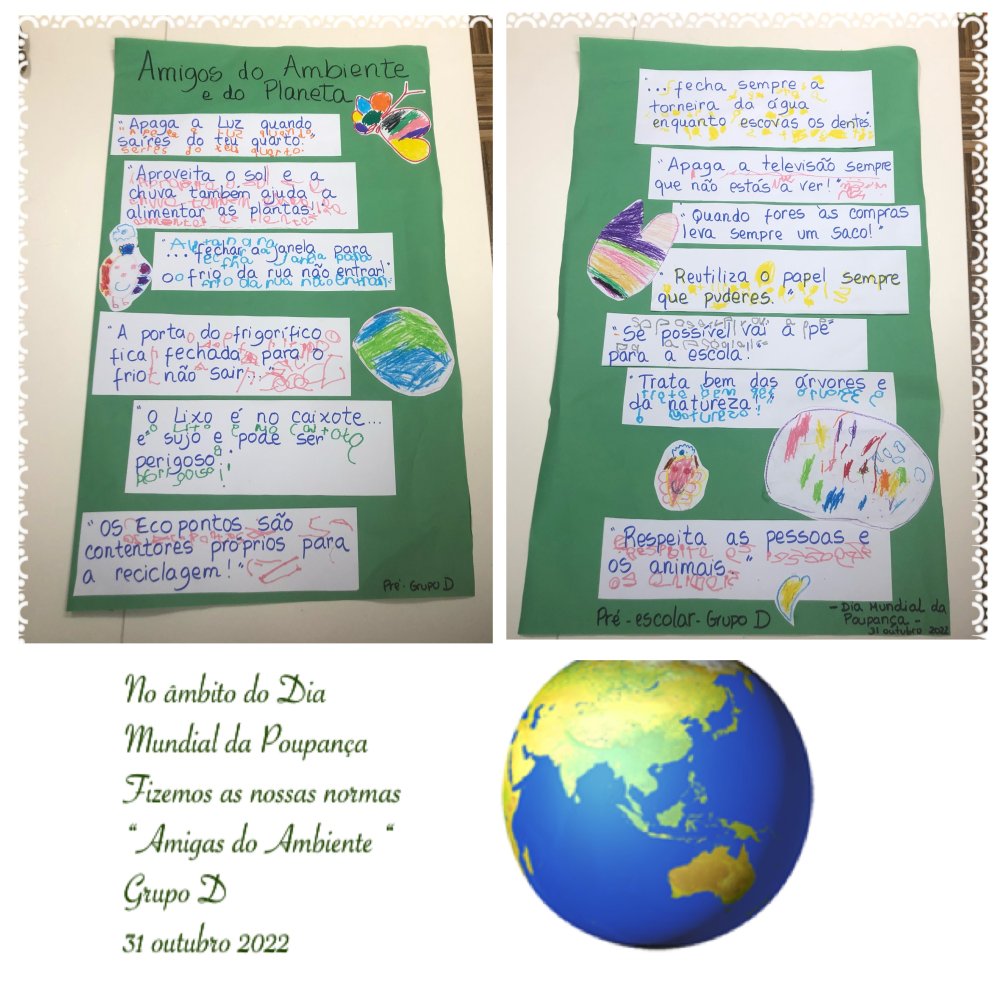 Amigos do Ambiente
e do Planeta
"Apaga a Luz quando
saíres do teu quarto."
"Aproveita o sol e a
chuva também ajuda a
alimentar as plantas!"
... fechar a janela para
o frio da rua não entrar!"
"A porta do frigorífico
fica fechada para o
frio não sair..."
"O Lixo é no caixote...
é sujo e pode ser
perigoso"
"Os Ecopontos são
contentores próprios para
a reciclagem!"
Pré - Grupo D
"... fecha sempre a
torneira da água
enquanto escovas os dentes.
"Apaga a televisão sempre
que não estás a ver!"
"Quando fores às compras
leva sempre um saco!"
"Reutiliza o papel sempre
que puderes."
"Se possível vai a pé
para a escola!"
"Trata bem das árvores e
da natureza!"
"Respeita as pessoas e
os animais..."
Pré - escolar - Grupo D
- Dia Mundial da
Poupança -
31 outubro 2022
No âmbito do Dia
Mundial da Poupança
Fizemos as nossas normas
"Amigas do Ambiente "
Grupo D
31 outubro 2022